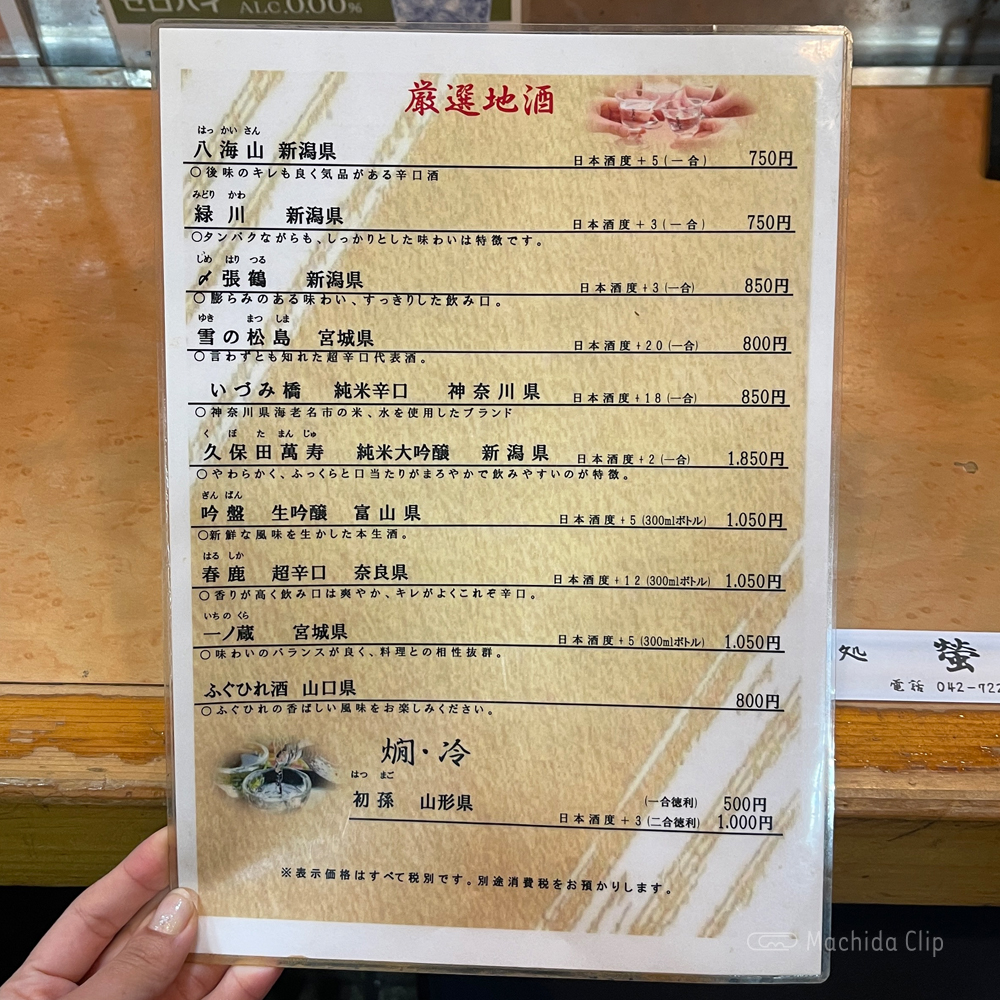 ゼロハイ ALC.0.00%
厳選地酒
はっ かい さん
八海山 新潟県 日本酒度+5(一合) 750円
○後味のキレも良く気品がある辛口酒
みどり かわ
緑川 新潟県 日本酒度+3(一合) 750円
○タンパクながらも、しっかりとした味わいは特徴です。
しめ はり つる
〆張鶴 新潟県 日本酒度+3(一合) 850円
○膨らみのある味わい、すっきりした飲み口。
ゆき まつ しま
雪の松島 宮城県 日本酒度+20(一合) 800円
○言わずとも知れた超辛口代表酒。
いづみ橋 純米辛口 神奈川県 日本酒度+18(一合) 850円
○神奈川県海老名市の米、水を使用したブランド
く ぼ た まん じゅ
久保田萬寿 純米大吟醸 新潟県 日本酒度+2(一合) 1.850円
○やわらかく、ふっくらと口当たりがまろやかで飲みやすいのが特徴。
ぎん ばん
吟盤 生吟醸 富山県 日本酒度+5(300mlボトル) 1.050円
○新鮮な風味を生かした本生酒。
はる しか
春鹿 超辛口 奈良県 日本酒度+12(300mlボトル) 1.050円
○香りが高く飲み口は爽やか、キレがよくこれぞ辛口。
いちの くら
一ノ蔵 宮城県 日本酒度+5(300mlボトル) 1.050円
○味わいのバランスが良く、料理との相性抜群。
ふぐひれ酒 山口県 800円
○ふぐひれの香ばしい風味をお楽しみください。
燗・冷
はつ まご
初孫 山形県 (一合徳利) 500円
日本酒度+3(二合徳利) 1.000円
※表示価格はすべて税別です。別途消費税をお預かりします。
処 螢
電話 042-722
Machida Clip